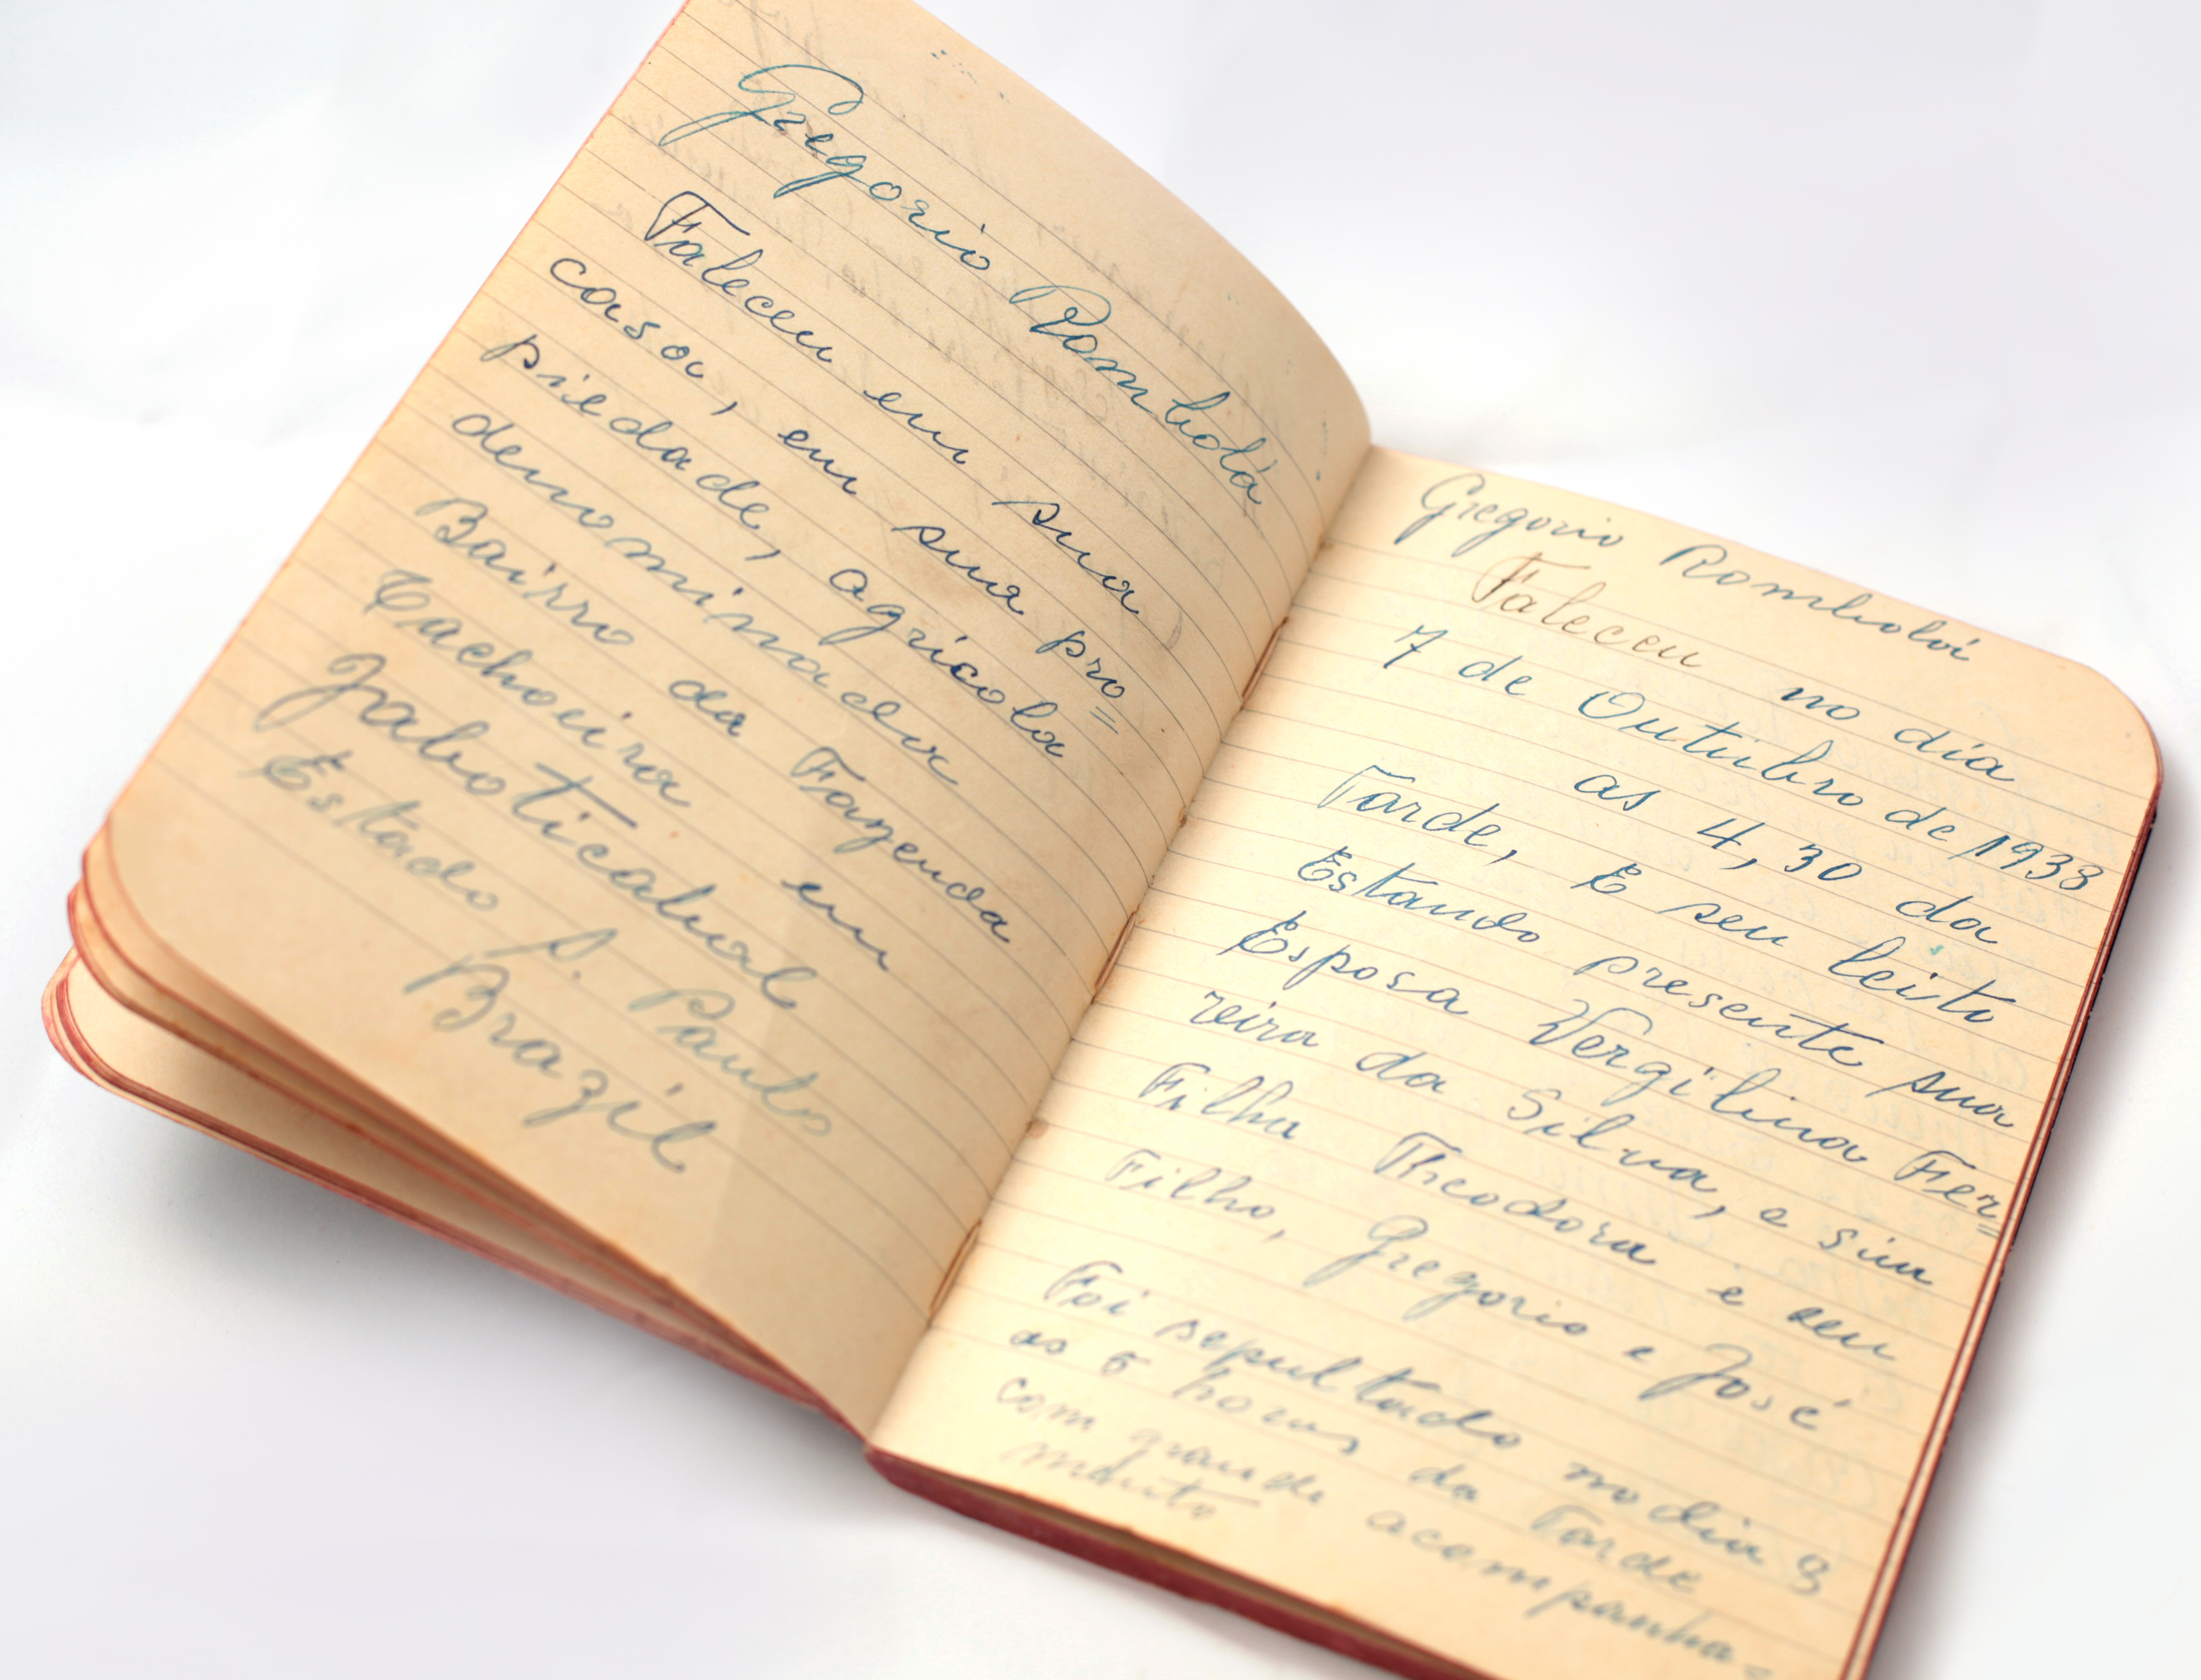 Gregorio Rombolá
Faleceu em sua
casa, em sua pro=
priedade, agricola
denominada
Bairro da Fazenda
Cachoeira em
Jaboticabal
Estado S. Paulo
Brazil
Gregorio Rombolá
Faleceu no dia
7 de Outubro de 1933
as 4,30 da
Tarde, E seu leito
Estando presente sua
Esposa Vergilina Fer=
reira da Silva, e sua
Filha Theodora e seu
Filho, Gregorio e José
Foi sepultado no dia 8
as 5 horas da Tarde
com grande acompanha=
mento